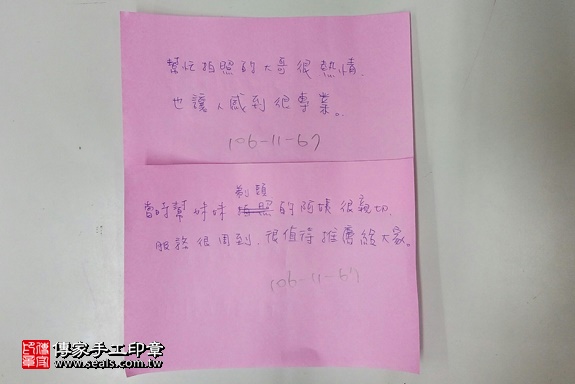 幫忙拍照的大哥很熱情,
也讓人感到很專業。
106-11-67
剃頭
當時幫妹妹拍照的阿姨很親切,
服務很周到,很值得推薦給大家。
106-11-67
傳家手工印章
www.seals.com.tw